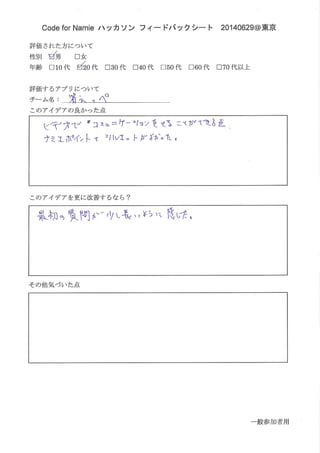 Code for Namie ハッカソン フィードバックシート 20140629@東京
評価された方について
性別 ☑男 □女
年齢 □10代 ☑20代 □30代 □40代 □50代 □60代 □70代以上
評価するアプリについて
チーム名：
このアイデアの良かった点
ビデオで コミュニケーションをとることができる点
ナミエポイントで シルエットがよかった。
このアイデアを更に改善するなら？
最初の質問が少し長いように感じた。
その他気づいた点
一般参加者用